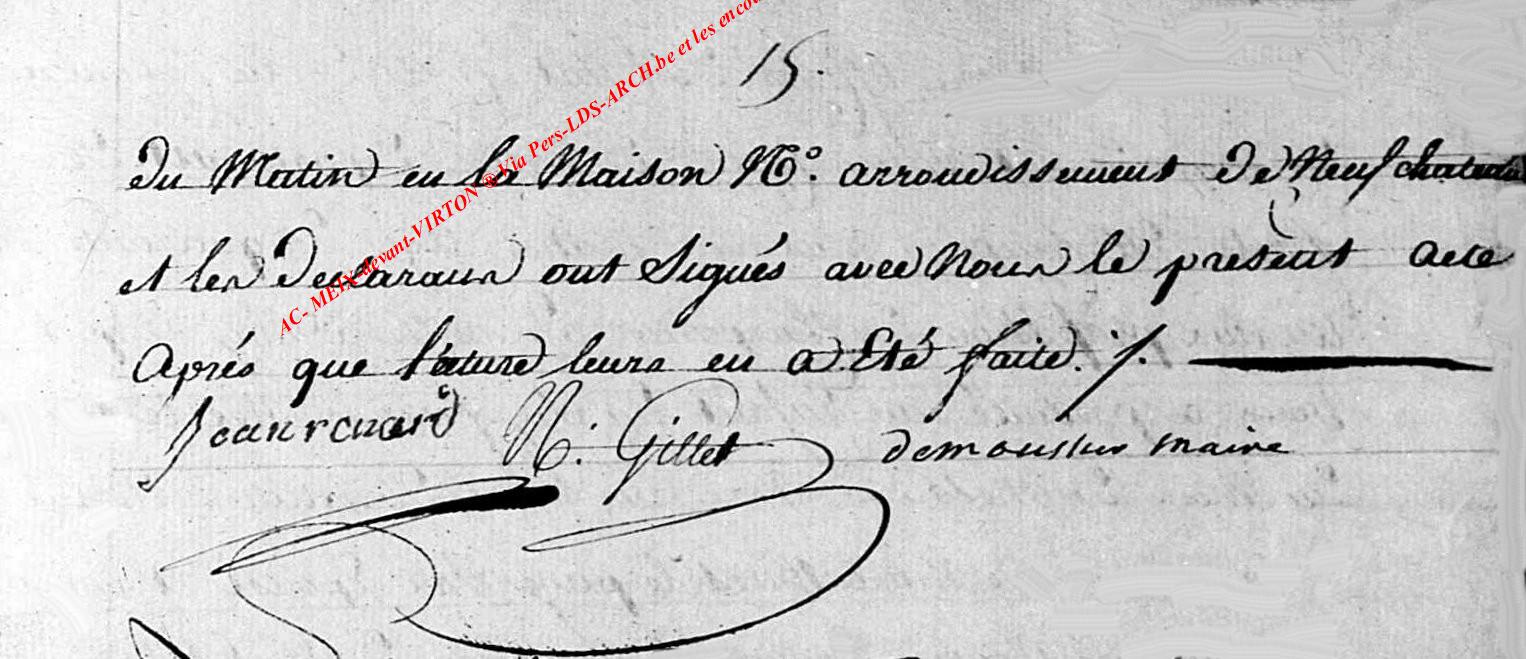 15.
AC- MEIX-devant-VIRTON ® Via Pers-LDS-ARCH.be et les enco
du Matin en la Maison N°. arrondissement de Neufchateau
et les declarans ont Signés avec Nous le present acte
Aprés que l'ature leurs en a Eté faite ./.
Jean renard N. Gillet demoustier maire